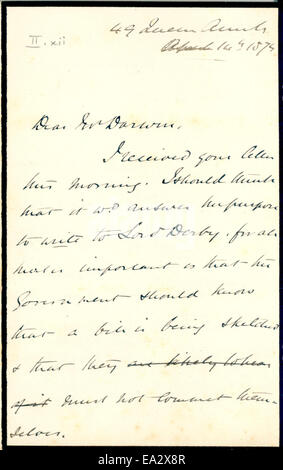 II.xii
49 Queen Anne St
April 14th 1875
Dear Mr Darwin,
I received your letter
this morning. I should think
that it wd answer the purpose
to write to Lord Derby, for all
that is important is that the
Government should know
that a bill is being sketched
& that they are likely to hear
of it must not commit them-
selves.
alamy
EA2X8R